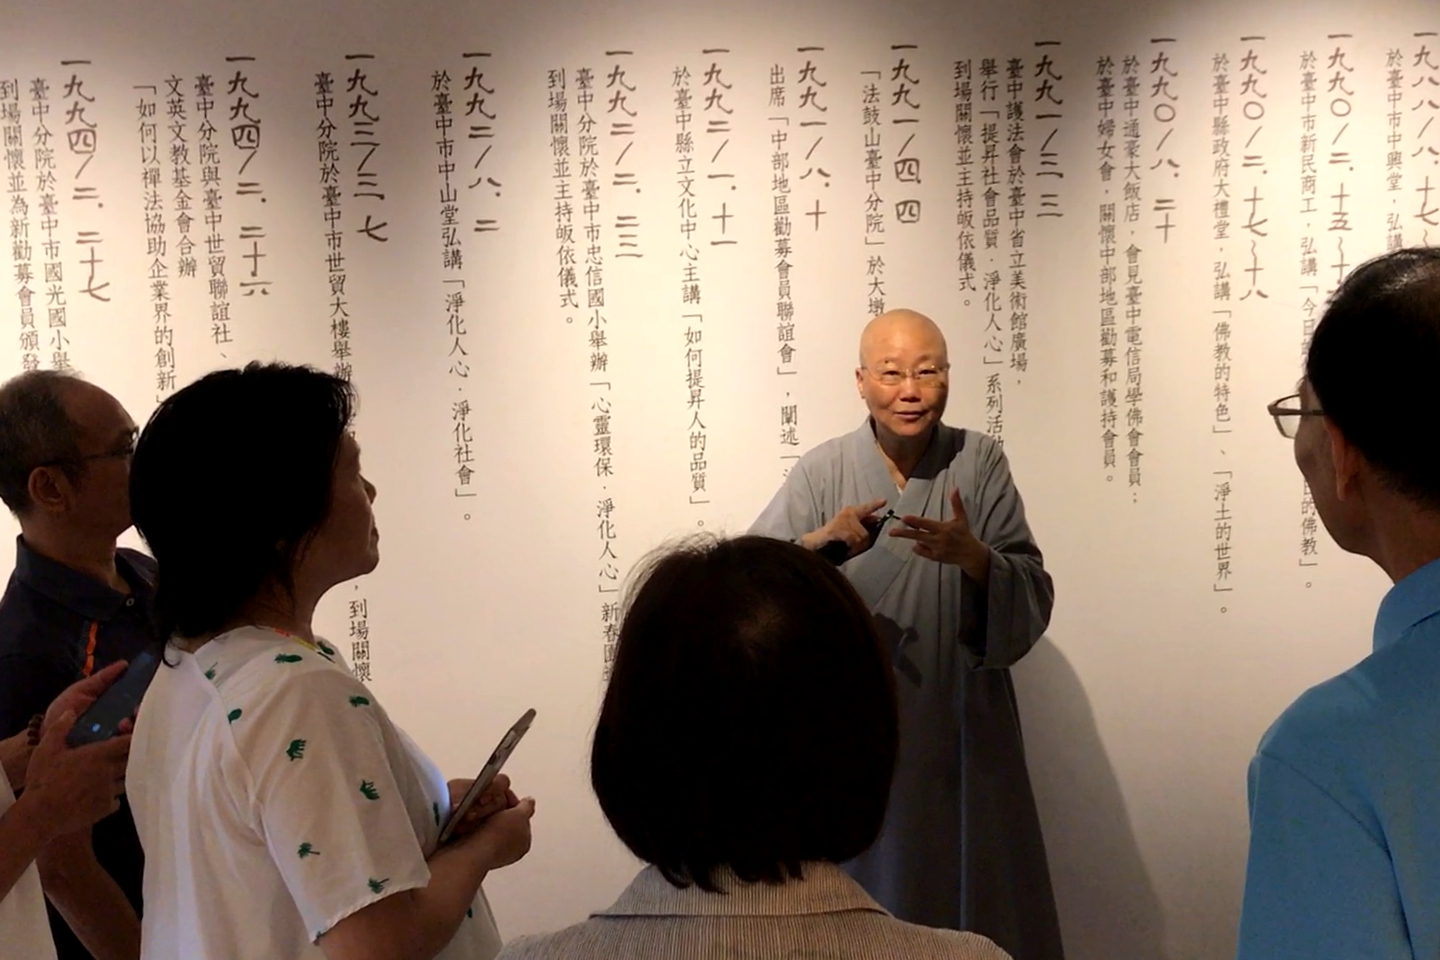 一九八八/八.十七
於臺中市中興堂，弘講
一九九〇/二.十五~十
於臺中市新民商工，弘講「今日
的佛教」。
一九九〇/二.十七~十八
於臺中縣政府大禮堂，弘講「佛教的特色」、「淨土的世界」。
一九九〇/八.二十
於臺中通豪大飯店，會見臺中電信局學佛會會員；
於臺中婦女會，關懷中部地區勸募和護持會員。
一九九一/三.三
臺中護法會於臺中省立美術館廣場，
舉行「提昇社會品質．淨化人心」系列活
到場關懷並主持皈依儀式。
一九九一/四.四
「法鼓山臺中分院」於大墩
一九九一/八.十
出席「中部地區勸募會員聯誼會」，闡述「
一九九二/一.十一
於臺中縣立文化中心主講「如何提昇人的品質」。
一九九二/二.二三
臺中分院於臺中市忠信國小舉辦「心靈環保．淨化人心」新春
到場關懷並主持皈依儀式。
一九九二/八.二
於臺中市中山堂弘講「淨化人心．淨化社會」。
一九九三/三.七
臺中分院於臺中市世貿大樓舉辦
，到場關懷
一九九四/二.二十六
臺中分院與臺中世貿聯誼社、
文英文教基金會合辦
「如何以禪法協助企業界的創新」
一九九四/二.二十七
臺中分院於臺中市國光國小舉
到場關懷並為新勸募會員頒發